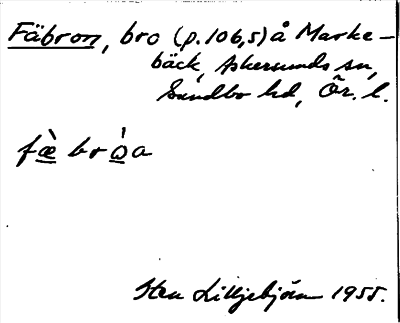 Fäbron, bro (p.106,5) å Marke-
bäck, Askersunds sn,
Sundbo hd, Ör. l.
fæ̀ broa
Sten Lilljebjörn 1955.